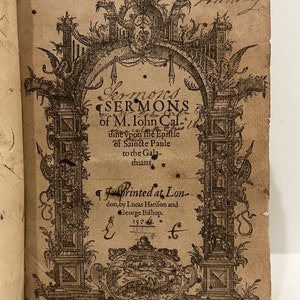 Sermons
SERMONS
of M. Iohn Cal-
uine vpon the Epistle
of Saincte Paule
to the Gala-
thians.
Imprinted at Lon-
don, by Lucas Harison and
George Bishop.
1574.